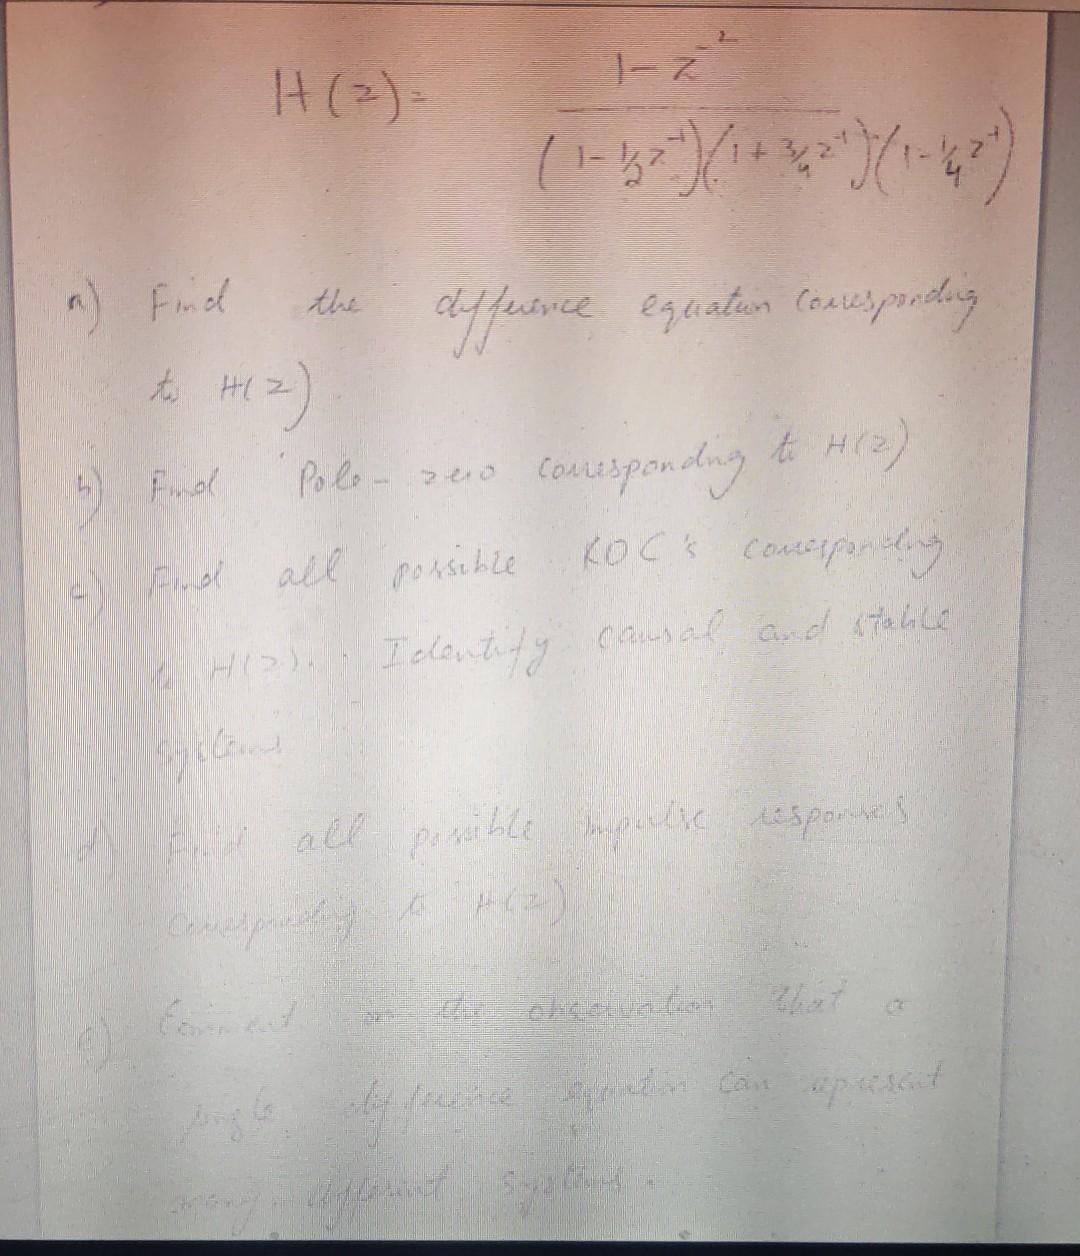 H(z) = 1 - z^-2
(1 - 1/2 z^-1)(1 + 3/4 z^-1)(1 - 1/4 z^-1)
a) Find the difference equation corresponding
to H(z)
b) Find Pole-zero corresponding to H(z)
c) Find all possible ROC's corresponding
to H(z). Identify causal and stable
systems
d) Find all possible impulse responses
corresponding to H(z)
e) Comment on the observation that a
single difference equation can represent
many different systems.